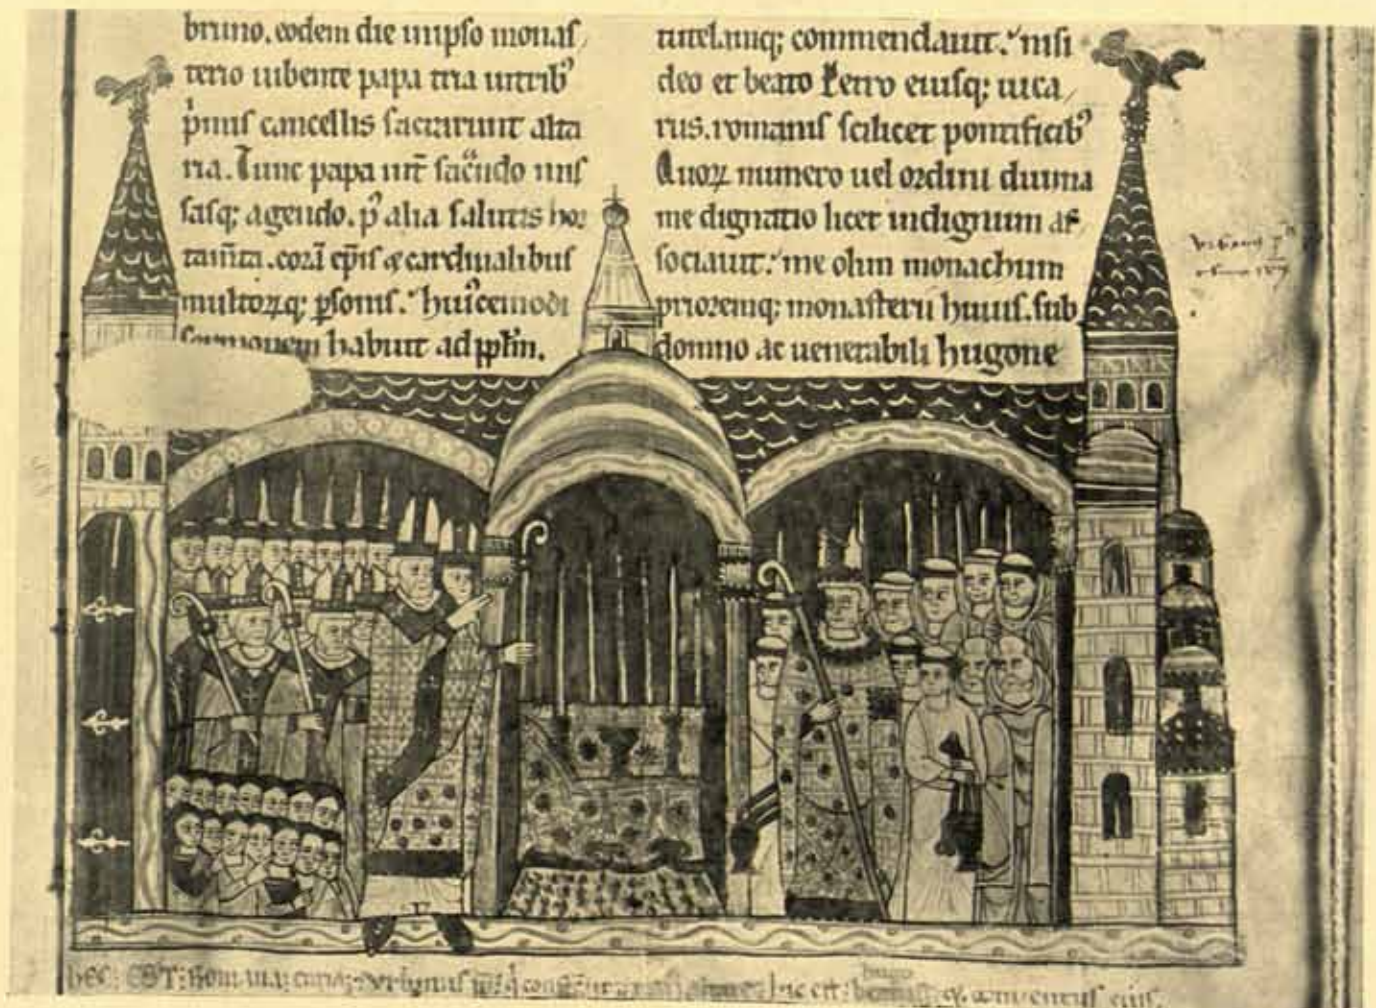 bruno. eodem die in ipso monas/
terio iubente papa tria in trib᷒
p̍mis cancellis sacrarunt alta
ria. Tunc papa int̄ sac̍ndo mis
sasq; agendo. p᷒ alia salutis hor
tam̄ta. corā ep̄is & cardinalibus
multorꝝq; ꝑsonis. huiꝰcemodi
sermonem habuit ad pp̄lm.
tutelamq; commendauit. nisi
deo et beato Petro eiusq; uica/
riis. romanis scilicet pontificib᷒
Quorꝝ numero uel ordini diuina
me dignatio licet indignum as/
sociauit. me olim monachum
prioremq; monasterii huius. sub
domno ac uenerabili hugone
hec: EST: Romana: curia: Vrbanus
hugo
hec est: & conuentus eius